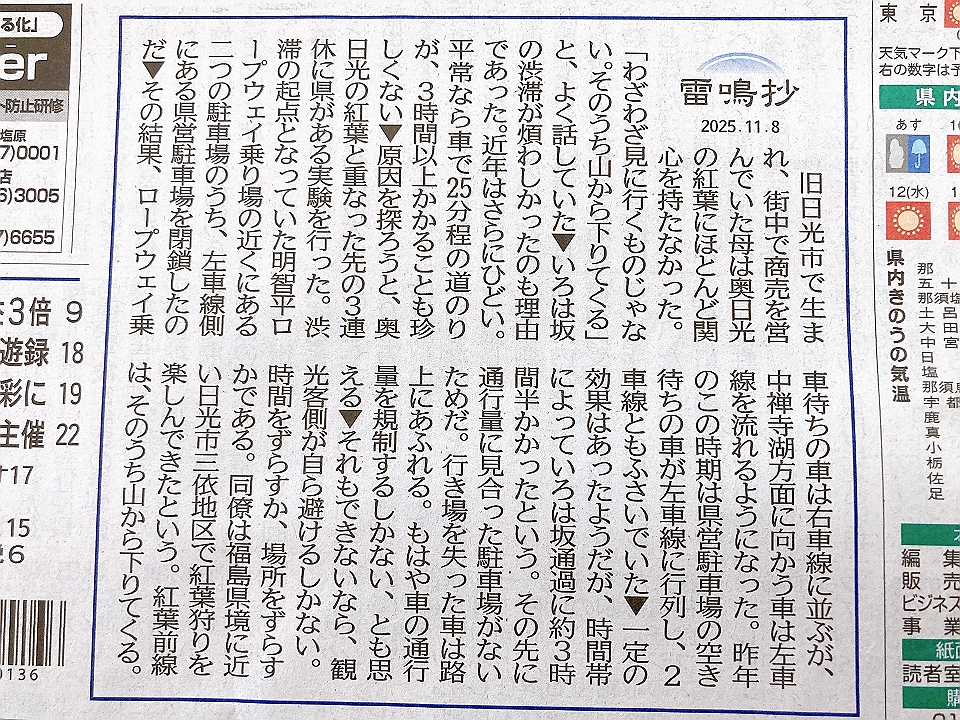 雷鳴抄
2025.11.8
旧日光市で生ま
れ、街中で商売を営
んでいた母は奥日光
の紅葉にほとんど関
心を持たなかった。
「わざわざ見に行くものじゃな
い。そのうち山から下りてくる」
と、よく話していた▼いろは坂
の渋滞が煩わしかったのも理由
であった。近年はさらにひどい。
平常なら車で25分程の道のり
が、3時間以上かかることも珍
しくない▼原因を探ろうと、奥
日光の紅葉と重なった先の3連
休に県がある実験を行った。渋
滞の起点となっていた明智平ロ
ープウェイ乗り場の近くにある
二つの駐車場のうち、左車線側
にある県営駐車場を閉鎖したの
だ▼その結果、ロープウェイ乗
車待ちの車は右車線に並ぶが、
中禅寺湖方面に向かう車は左車
線を流れるようになった。昨年
のこの時期は県営駐車場の空き
待ちの車が左車線に行列し、2
車線ともふさいでいた▼一定の
効果はあったようだが、時間帯
によっていろは坂通過に約3時
間半かかったという。その先に
通行量に見合った駐車場がない
ためだ。行き場を失った車は路
上にあふれる。もはや車の通行
量を規制するしかない、とも思
える▼それもできないなら、観
光客側が自ら避けるしかない。
時間をずらすか、場所をずらす
かである。同僚は福島県境に近
い日光市三依地区で紅葉狩りを
楽しんできたという。紅葉前線
は、そのうち山から下りてくる。
る化」
er
ト防止研修
塩原
7)0001
店
6)3005
7)6655
3倍 9
遊録 18
彩に 19
主催 22
ナ17
.15
6
0136
東京
天気マーク下
右の数字は予
県内
あす
12(水)
県内きのうの気温
那
五十
那須塩
土呂
大田
中宮
日
塩
那須烏
宇都
鹿
真
小
栃
佐
足
編集
販売
ビジネス
事業
紙面
読者室
購